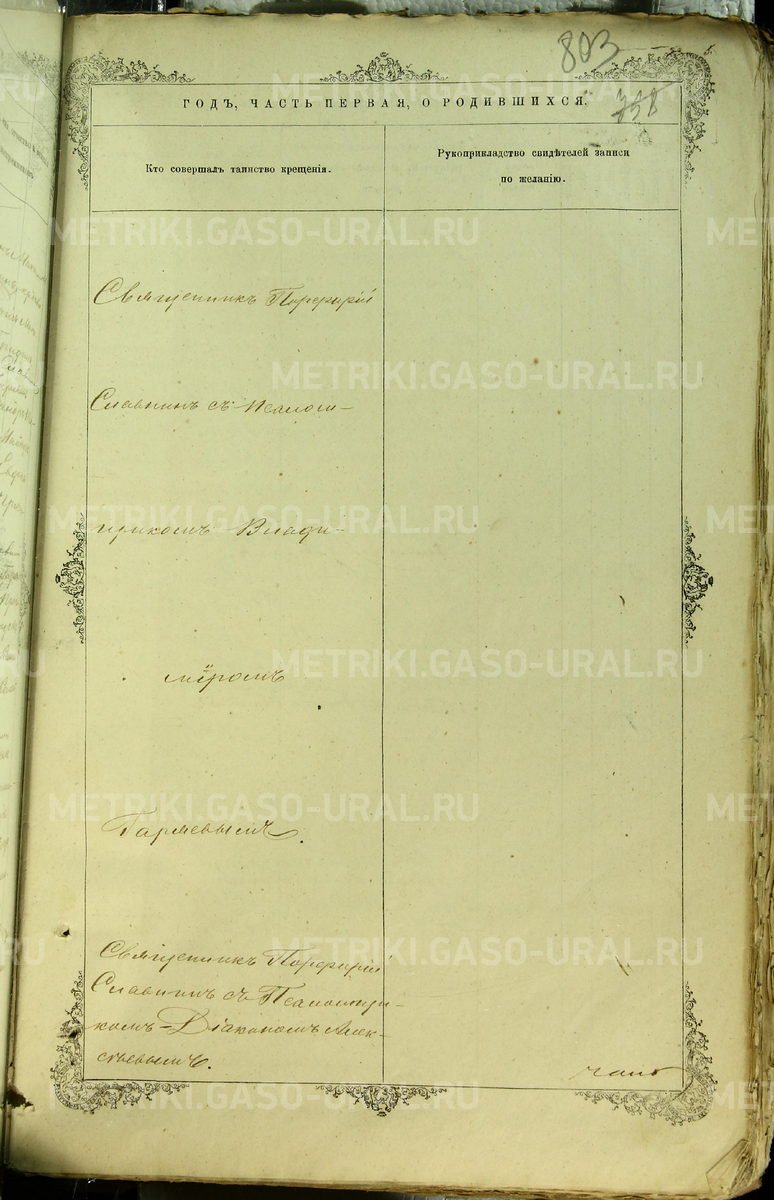 803
738
ГОДЪ, ЧАСТЬ ПЕРВАЯ, О РОДИВШИХСЯ.
Кто совершалъ таинство крещенія.
Рукоприкладство свидѣтелей записи
по желанію.
Священникъ Порфирій
Славнинъ съ Псалом-
щикомъ Влади-
міромъ
Гаряевымъ.
Священникъ Порфирій
Славнинъ съ Псаломщи-
комъ-Діакономъ Алек-
сѣевымъ.
METRIKI.GASO-URAL.RU